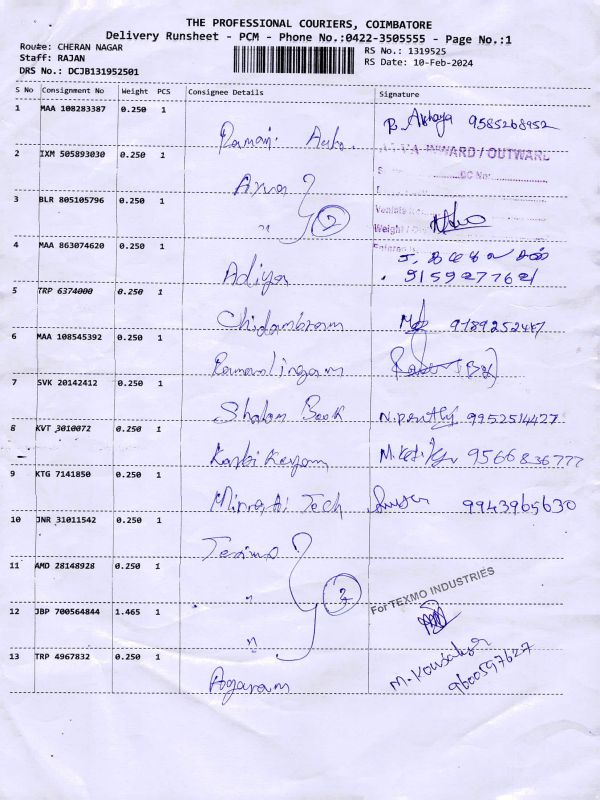 THE PROFESSIONAL COURIERS, COIMBATORE
Delivery Runsheet - PCM - Phone No.:0422-3505555 - Page No.:1
Route: CHERAN NAGAR
RS No.: 1319525
Staff: RAJAN
RS Date: 10-Feb-2024
DRS No.: DCJB131952501
S No Consignment No Weight PCS Consignee Details Signature
1 MAA 108283387 0.250 1
Raman. Auto. B. Akhaya 9585268952
2 IXM 505893030 0.250 1
INWARD / OUTWARD
3 BLR 805105796 0.250 1
" 2
Weight /
4 MAA 863074620 0.250 1
Adiya 9159277621
5 TRP 6374000 0.250 1
Chidambram
6 MAA 108545392 0.250 1
Ramanlingam
7 SVK 20142412 0.250 1
Shalom Book 9952514427
8 KVT 3010072 0.250 1
9566836777
9 KTG 7141850 0.250 1
Tech 9943965630
10 JNR 31011542 0.250 1
11 AMD 28148928 0.250 1
" 3 For TEXMO INDUSTRIES
12 JBP 700564844 1.465 1
"
13 TRP 4967832 0.250 1
Agaram M. Kousalya
9600597627